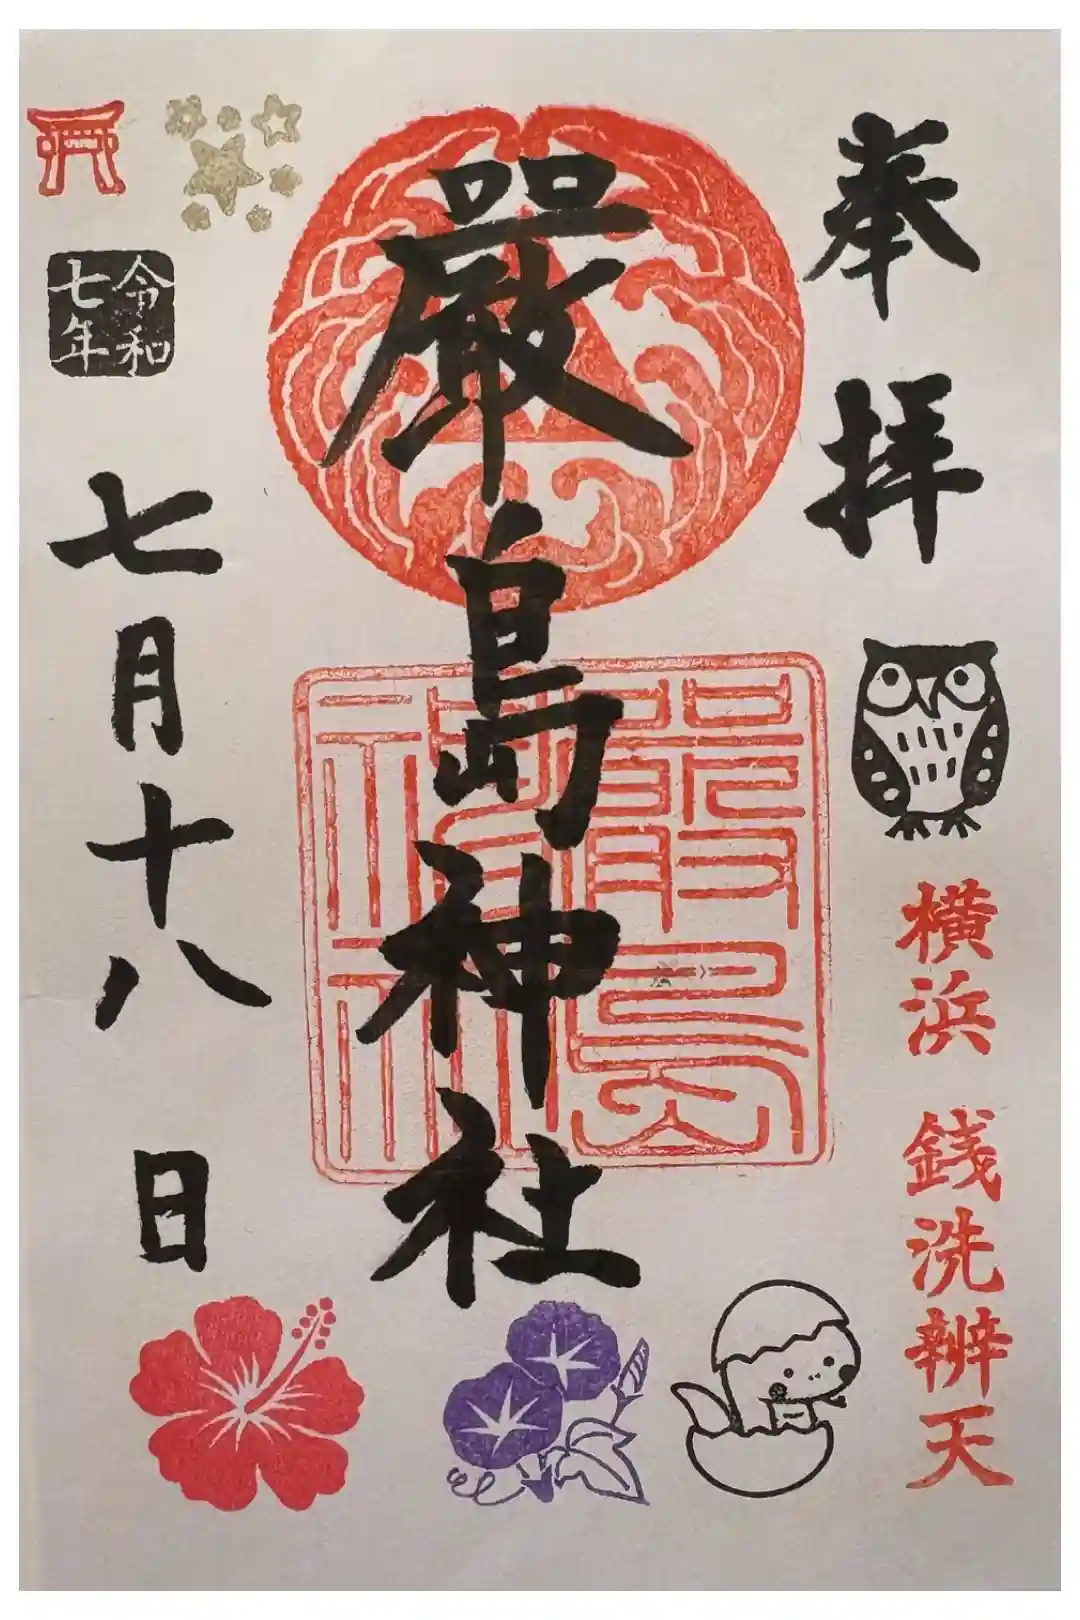 奉拝
横浜 銭洗辨天
嚴島神社
嚴島
神社
令和
七年
七月十八日